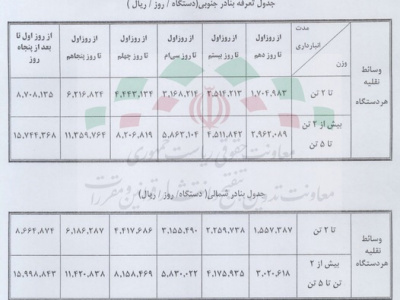 جدول تعرفه بنادر جنوبی(دستگاه / روز / ریال )
وسائط نقلیه هردستگاه
مدت انبارداری
وزن
از روزاول تا روز دهم
از روزاول تا روز بیستم
از روزاول تا روز سی‌ام
از روزاول تا روز چهلم
از روزاول تا روز پنجاهم
از روز اول تا بعد از پنجاه روز
تا ۲ تن
۱,۷۰۴,۹۸۳
۲,۵۱۴,۲۱۳
۳,۱۶۸,۲۱۲
۴,۴۴۳,۱۳۴
۶,۲۱۶,۸۲۴
۸,۷۰۸,۱۳۵
بیش از ۲ تن تا ۵ تن
۲,۹۶۲,۰۸۹
۴,۵۱۱,۸۴۲
۵,۸۶۲,۱۰۴
۸,۲۰۶,۸۱۹
۱۱,۳۵۹,۷۶۴
۱۵,۷۴۴,۳۶۸
معاونت حقوقی ریاست جمهوری
معاونت تدوین، تنقیح و انتشار قوانین و مقررات
جدول بنادر شمالی( دستگاه/ روز/ ریال)
وسائط نقلیه هردستگاه
تا ۲ تن
۱,۵۵۷,۳۸۷
۲,۲۵۹,۷۳۸
۳,۱۵۵,۴۹۰
۴,۴۱۷,۶۸۶
۶,۱۸۶,۲۸۷
۸,۶۶۴,۸۷۴
بیش از ۲ تن تا ۵ تن
۳,۰۲۰,۶۱۸
۴,۱۷۵,۹۳۵
۵,۸۳۰,۰۲۲
۸,۱۵۸,۴۶۹
۱۱,۴۲۰,۸۳۸
۱۵,۹۹۸,۸۴۳